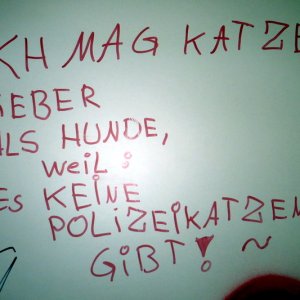 ICH MAG KATZEN
LIEBER
ALS HUNDE,
WEiL :
ES KEiNE
POLiZEiKATZEN
GiBT! ~